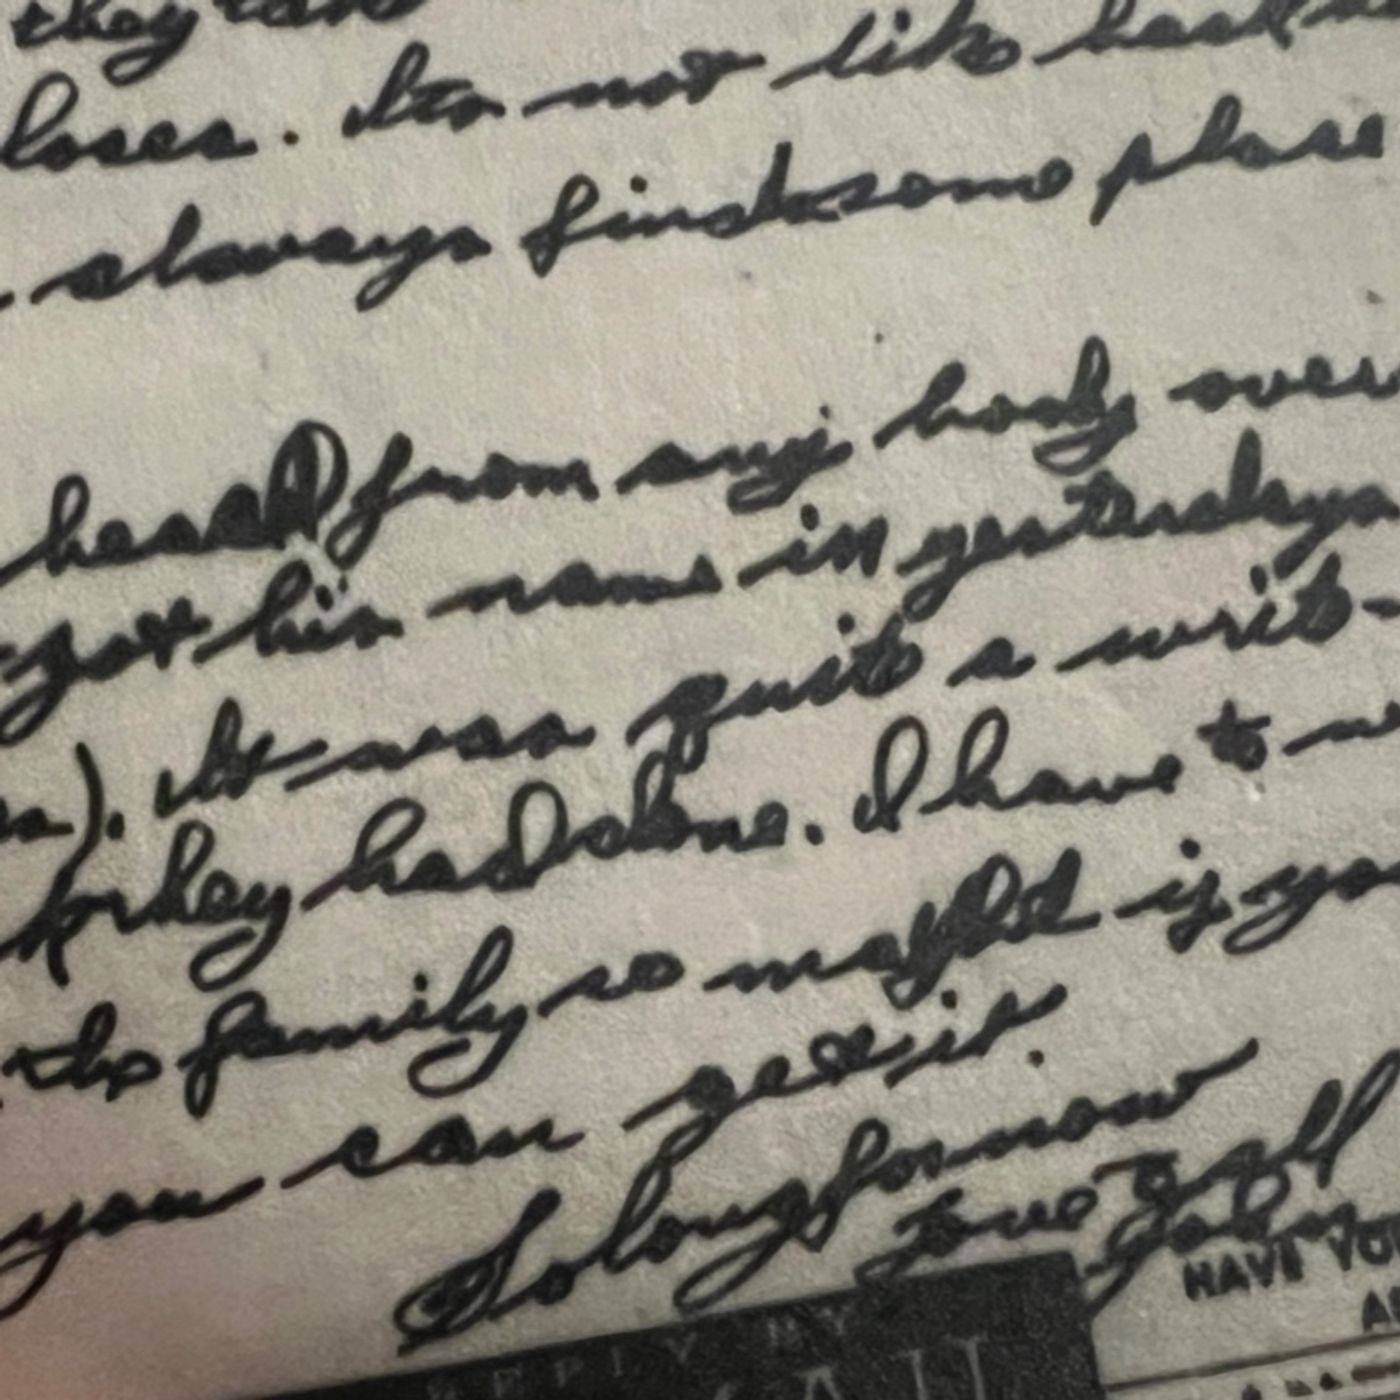 they
loses. Its not like back
always finds some place
heard from any body over
got his name in yesterdays
). It was quite a write-
had done. I have to
the family so might if
you can get it.
So long for now
Love to all
John
REPLY BY
HAVE YO